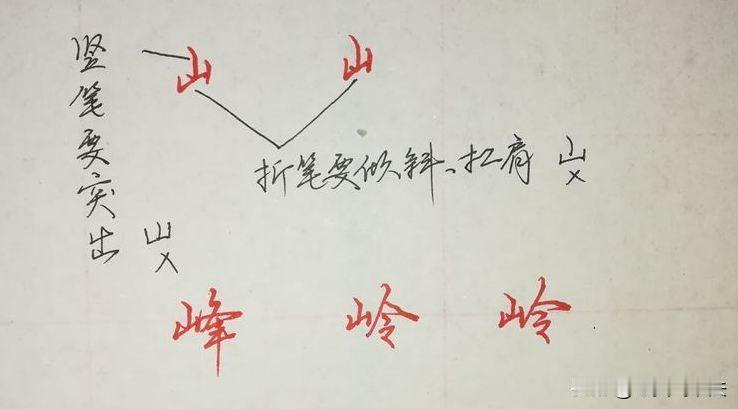 山 山
竖笔要突出 山×
折笔要倾斜、扛肩 山×
峰 岭 岭